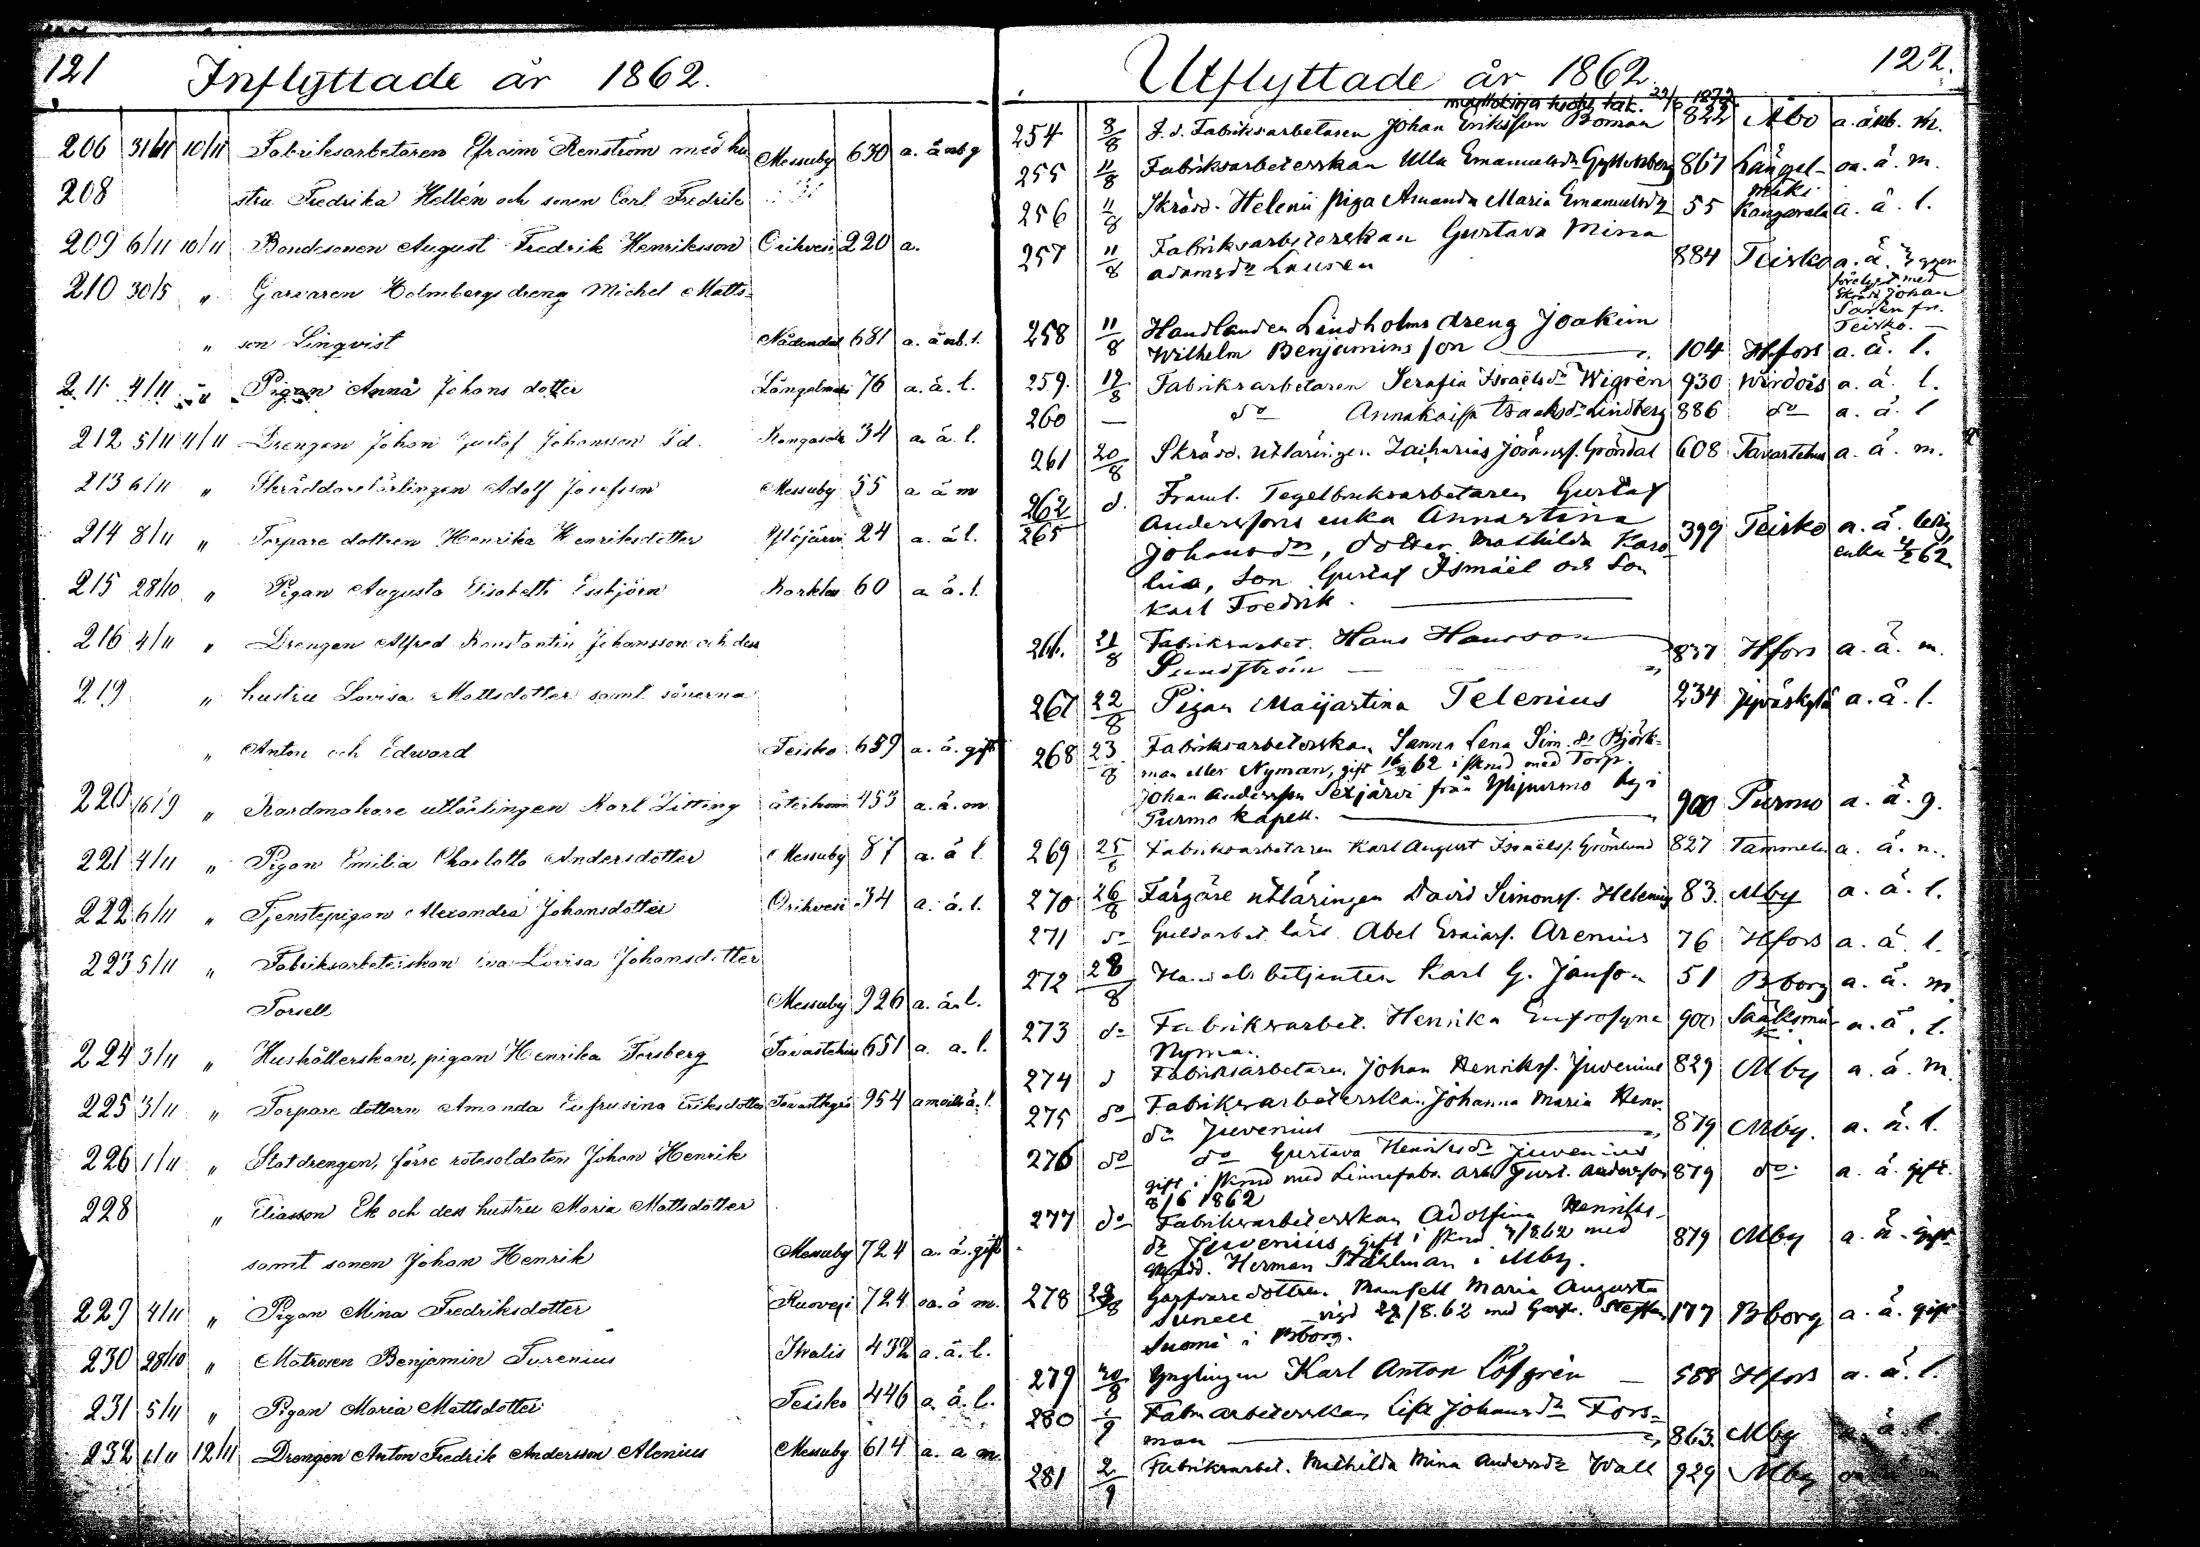 121
Inflyttade år 1862.
206 31/10 10/11 Fabriksarbetaren Efraim Renström med hu Messuby 630 a. ä nb g
208 stru Fredrika Hellén och sonen Carl Fredrik
209 6/11 10/11 Bondesonen August Fredrik Henriksson Orihvesi 220 a.
210 30/5 " Garfvaren Holmbergs dreng Michel Matts-
" son Linqvist Nådendal 681 a. ä nb. l.
211 4/11 " Pigan Anna Johans dotter Längelmäki 76 a. ä. l.
212 5/11 11/11 Drengen Johan Gustaf Johansson Kangasala 34 a ä. l.
213 6/11 " Skräddarelärlingen Adolf Josefsson Messuby 55 a ä m
214 8/11 " Torpare dottren Henrika Henriksdotter Ylöjärvi 24 a. ä l.
215 28/10 " Pigan Augusta Elisabeth Esbjörn Karkku 60 a ä. l.
216 4/11 " Drengen Alfred Konstantin Johansson och dess
219 " hustru Lovisa Mattsdotter samt sönerna
" Anton och Edward Teisko 659 a. ä. gift
220 16/9 " Kardmakare utlärlingen Karl Litting återkom 453 a. ä. m.
221 4/11 " Pigan Emilia Charlotta Andersdotter Messuby 87 a. ä l.
222 6/11 " Tjenstepigan Alexandra Johansdotter Orihvesi 34 a. ä. l.
223 5/11 " Fabriksarbeterskan Eva Lovisa Johansdotter
Torsell Messuby 926 a. ä. l.
224 3/11 " Hushållerskan, pigan Henrika Forsberg Tavastehus 651 a. a. l.
225 3/11 " Torpare dottern Amanda Eufrusina Eriksdotter Tavastkyrö 954 ä. l.
226 1/11 " Statdrengen, förre rotesoldaten Johan Henrik
228 " Eliasson Ek och dess hustru Maria Mattsdotter
samt sonen Johan Henrik Messuby 724 a. ä. gift
229 4/11 " Pigan Mina Fredriksdotter Ruovesi 724 oa. ä m.
230 28/10 " Matrosen Benjamin Turenius Ikalis 432 a. ä. l.
231 5/11 " Pigan Maria Mattsdotter Teisko 446 a. ä. l.
232 1/11 12/11 Drengen Anton Fredrik Andersson Alenius Messuby 614 a. a m.
122.
Utflyttade år 1862.
muuttokirja tak. 29/6 1872
254 8/8 F. d. Fabriksarbetaren Johan Eriksson Boman 822 Åbo a. änb. m.
255 11/8 Fabriksarbeterskan Ulla Emanuelsdr 867 Längel- oa. ä. m.
mäki
256 11/8 Skrädd. Helenii piga Amanda Maria Emanuelsdr 55 Kangasala a. ä. l.
257 11/8 Fabriksarbeterskan Gustava Mina
Adamsdr Lausen 884 Teisko a. ä. 3 ggr
förelyst med
Skrädd Johan
Saren fr.
Teisko. —
258 11/8 Handlanden Lindholms dreng Joakim
Wilhelm Benjaminsson — 104 H.fors a. ä. l.
259. 19/8 Fabriksarbetaren Serafia Israelsdr Wigrén 930 Wirdois a. ä. l.
260 — do Annakaisa Isaksdr Lindberg 886 do a. ä. l
261 20/8 Skrädd. utläringen Zacharias Gröndal 608 Tavastehus a. ä. m.
262/265 d. Framl. Tegelbruksarbetaren Gustaf
Anderssons enka Annastina
Johansdr, dotter Mathilda Karo-
lina, Son Gustaf Ismael och Son
Karl Fredrik. — 399 Teisko a. ä. ledig
enka 62
266. 21/8 Fabriksarbet. Hans Hansson
Sundström — 837 H.fors a. ä. m.
267 22/8 Pigan Maijastina Telenius 234 Jyväskylä a. ä. l.
268 23/8 Fabriksarbeterskan Sanna Lena Sim. dr Björk-
man eller Nyman, gift 62 i sknd med Torp.
Johan Andersson Sexjärvi från Ytipurmo by i
Purmo kapell. — 900 Purmo a. ä. g.
269 25/8 Fabriksarbetaren Karl August Israelss. Grönlund 827 Tammela a. ä. n.
270 26/8 Färgare utläringen David Simonss. Helenius 83. Mby a. ä. l.
271 do Guldarbet. lärl. Abel Esaiass. Arenius 76 H.fors a. ä. l.
272 28/8 Handelsbetjenten Karl G. Janson 51 Bborg a. ä. m.
273 do Fabriksarbet. Henrika Eufrosyne 900 Sääksmä- a. ä. l.
Nyman
274 d Fabriksarbetaren Johan Henrikss. Juvenius 829 Mby a. ä. m.
275 do Fabriksarbeterskan Johanna Maria Henr.
dr Juvenius — 879 Mby. a. ä. l.
276 do do Gustava Henriksdr Juvenius
gift i sknd med Linnefabr. Arb. Gust. Andersson 879 do a. ä. gift.
8/6 1862
277 do Fabriksarbeterskan Adolfina Henriks-
dr Juvenius gift i sknd 3/8.62 med
Skrädd. Herman Ståhlman i Mby. 879 Mby a. ä. gift
278 29/8 Garfvaredottren Mamsell Maria Augusta
Sunell vigd 28/8.62 med Garfv. Steffan 177 Bborg a. ä. gift
Suomi i Bborg.
279 30/8 Ynglingen Karl Anton Löfgrén — 588 H.fors a. ä. l.
280 1/9 Fabr. arbeterskan Lisa Johansdr Fors-
man — 863. Mby a. ä. l.
281 2/9 Fabriksarbet. Mathilda Mina Andersdr Wall 929 Mby